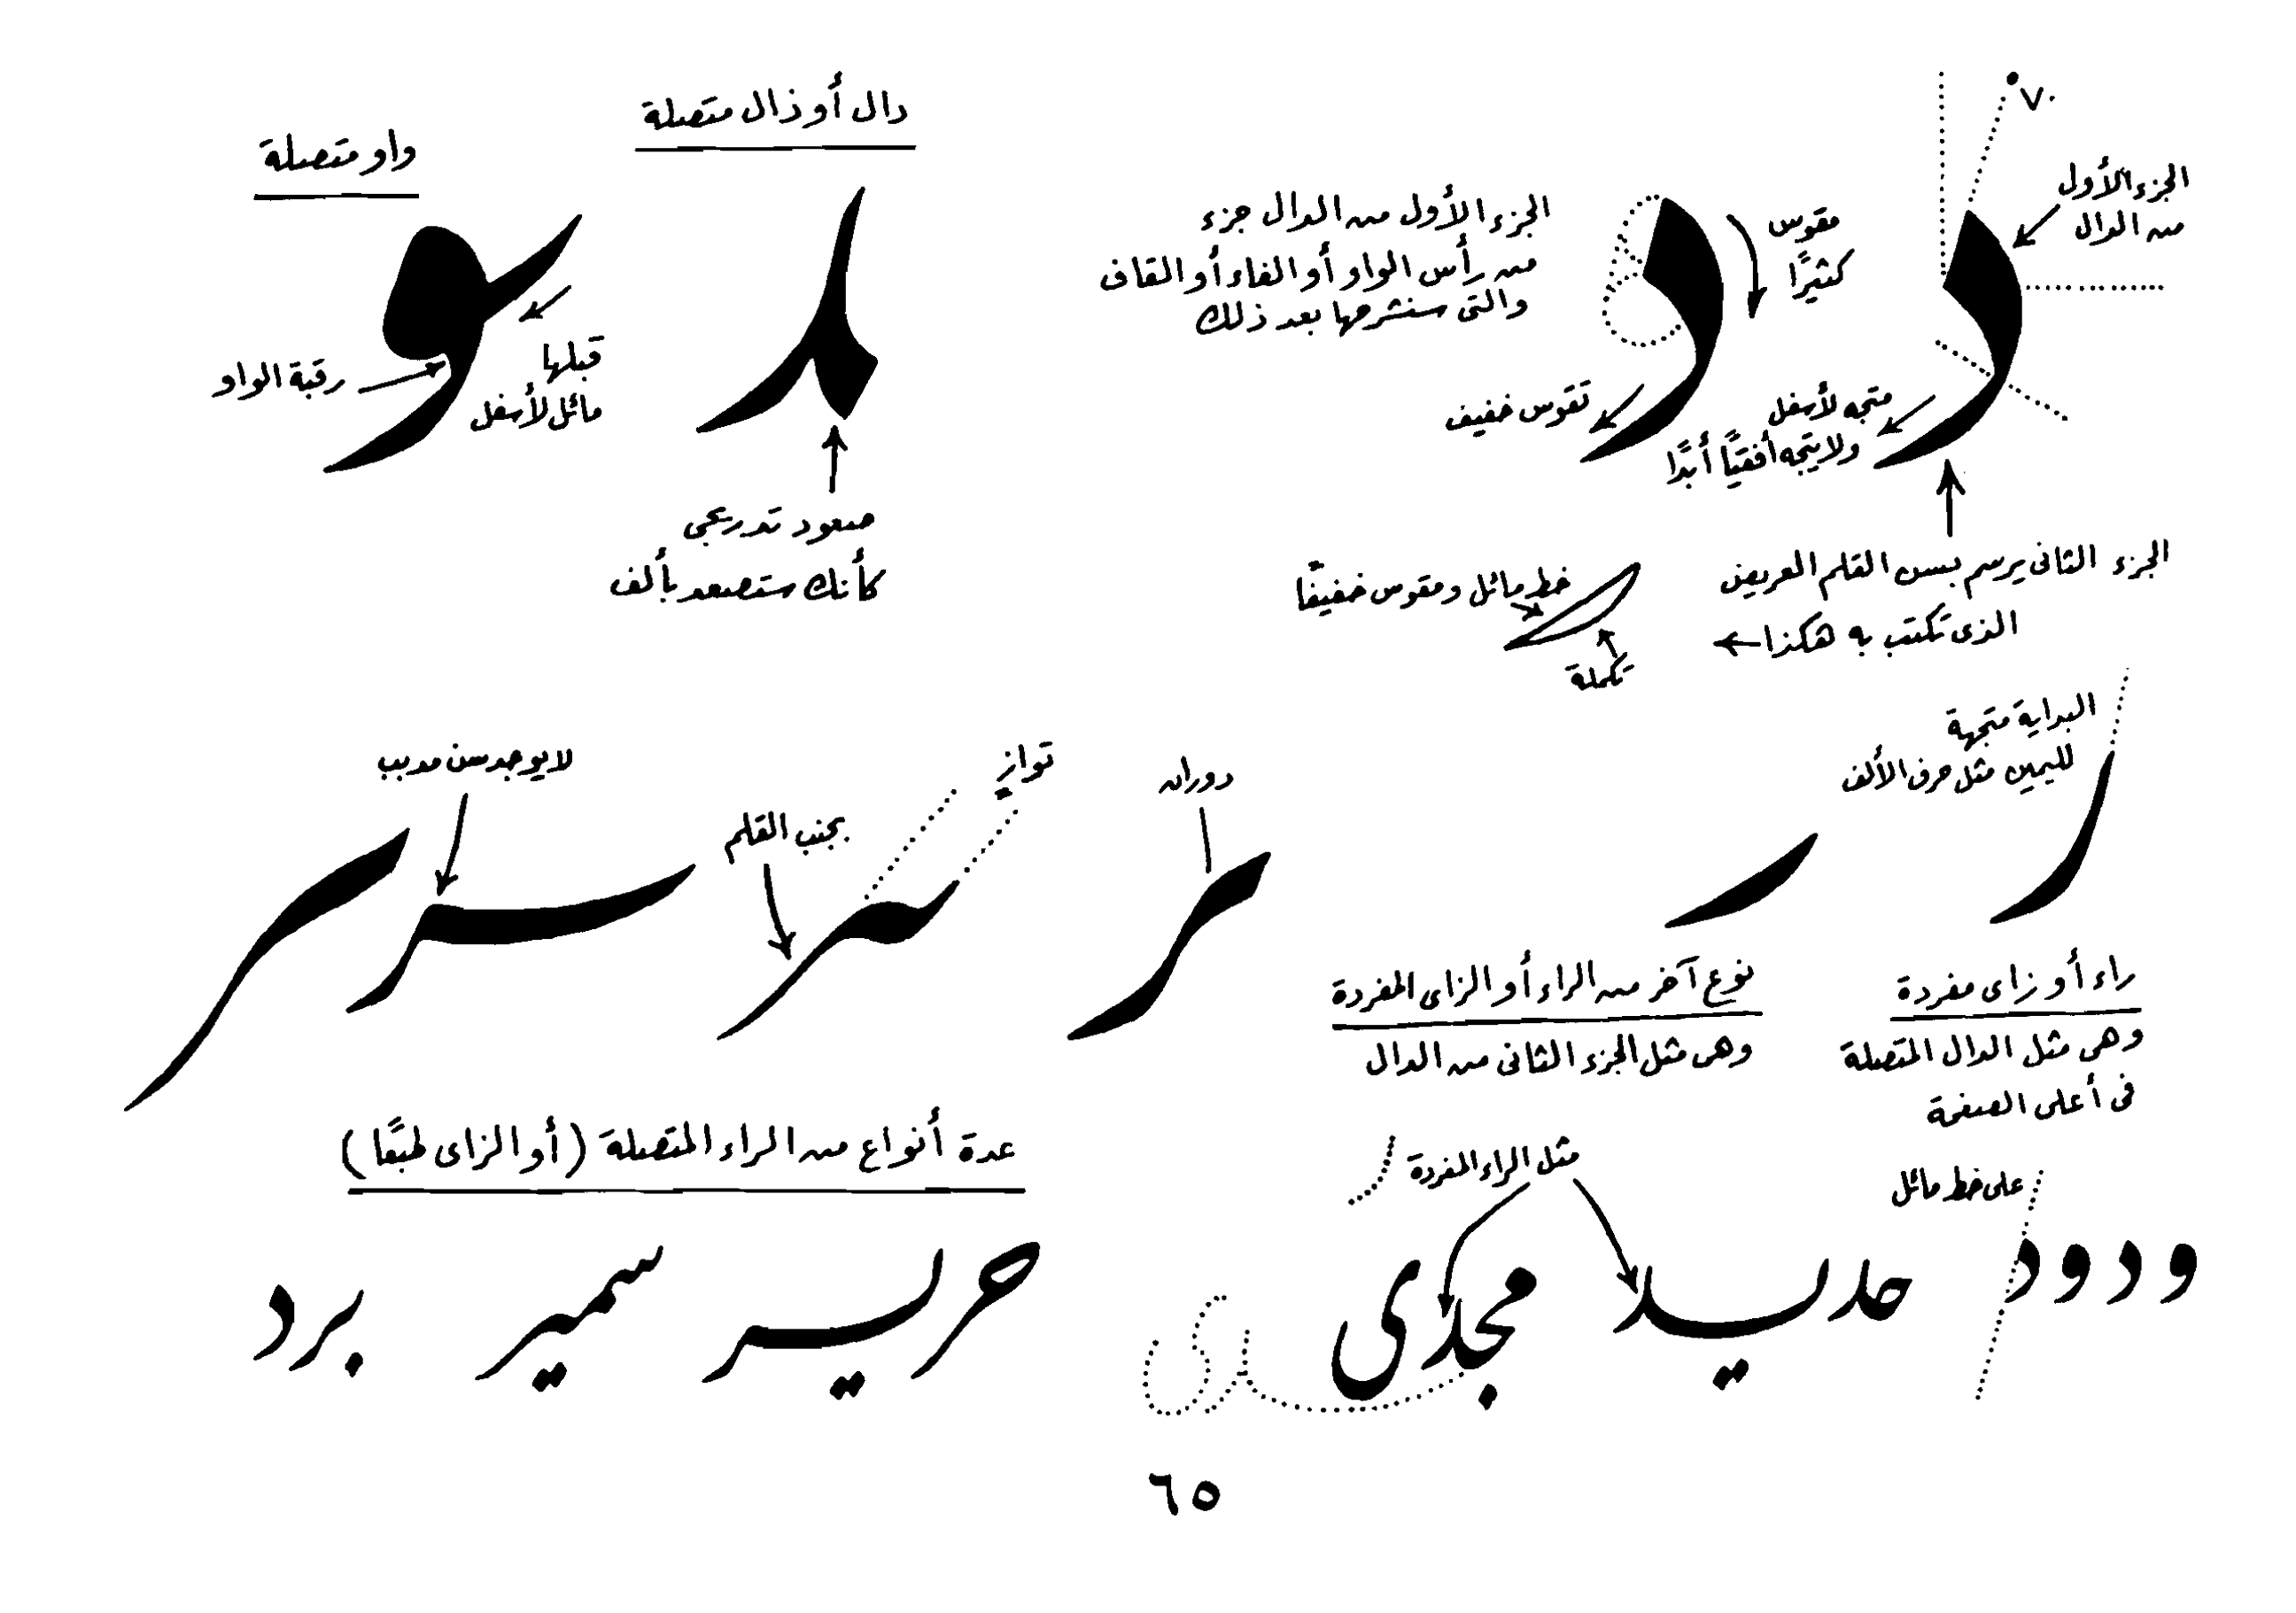 ٧٠°
الجزء الأول
من الدال
مقوس
كثيرًا
الجزء الأول من الدال جزء
من رأس الواو أو الفاء أو القاف
والتى سنشرحها بعد ذلك
تقوس خفيف
متجه لأسفل
ولا يتجه أفقيًا أبدًا
الجزء الثانى يرسم بسن القلم العريض
الذى تكتب به هكذا
خط مائل ومقوس خفيفًا
تكملة
دال أو ذال متصلة
صعود تدريجى
كأنك ستصعد بألف
واو متصلة
قبلها
مائل لأسفل
رقبة الواو
البداية متجهة
لليمين مثل حرف الألف
راء أو زاى مفردة
وهى مثل الدال المتصلة
فى أعلى الصفحة
نوع آخر من الراء أو الزاى المفردة
وهى مثل الجزء الثانى من الدال
دوران
توازٍ
بجنب القلم
لا يوجد سن مدبب
عدة أنواع من الراء المتصلة (أو الزاى طبعًا)
على خط مائل
مثل الراء المفردة
ودود حديد مجدى
حرير سمير برد
٦٥